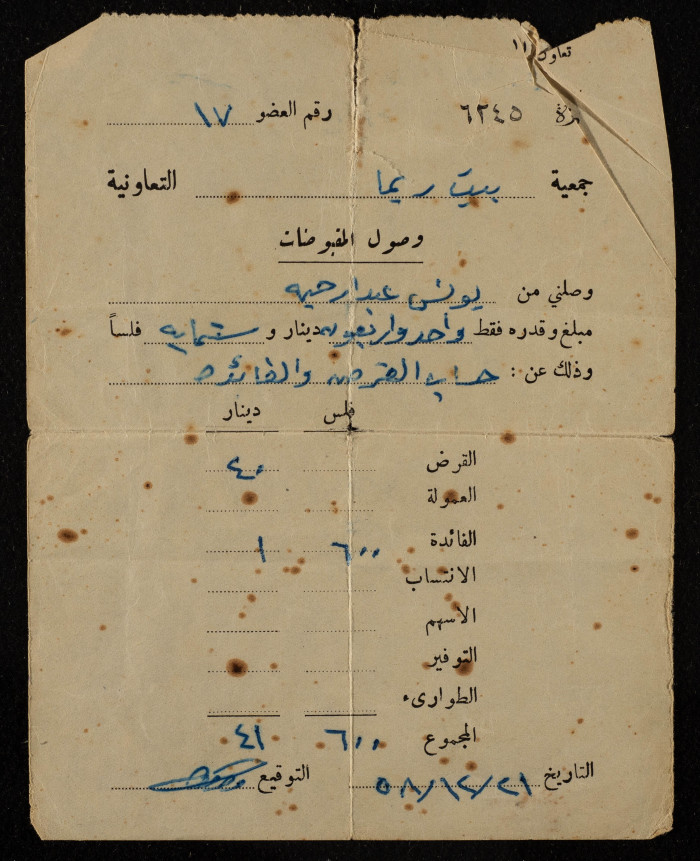 تعاون ١١
نمرة ٦٢٤٥ رقم العضو ١٧
جمعية بيت ريما التعاونية
وصول المقبوضات
وصلني من يونس عبدارحيم
مبلغ وقدره فقط واحد واربعون دينار و ستمايه فلساً
وذلك عن : حساب القرض والفائده
فلس دينار
القرض ٤٠
العمولة
الفائدة ٦٠٠ ١
الانتساب
الاسهم
التوفير
الطوارىء
المجموع ٦٠٠ ٤١
التاريخ ٥٨/١٢/٢١ التوقيع